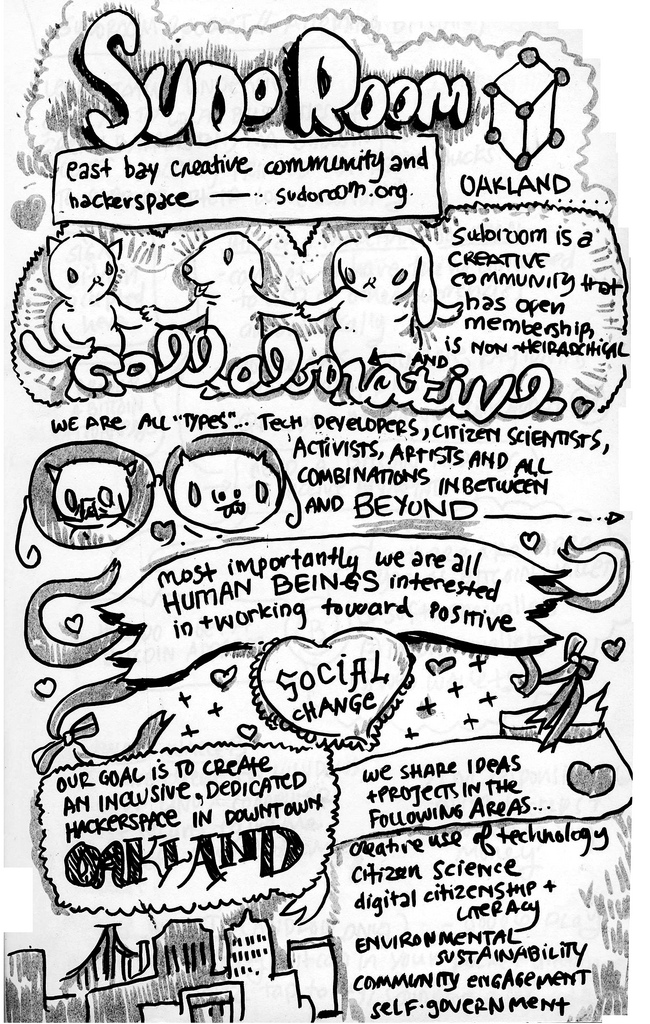 SUDO ROOM
east bay creative community and
hackerspace —·· sudoroom.org.
OAKLAND
Sudoroom is a
CREATIVE
community that
has open
membership,
is NON-HEIRADCHICAL
AND
Collaborative.
WE ARE ALL "TYPES"... TECH DEVELOPERS, CITIZEN SCIENTISTS,
ACTIVISTS, ARTISTS AND ALL
COMBINATIONS IN BETWEEN
AND BEYOND
most importantly we are all
HUMAN BEINGS interested
in + working toward positive
SOCIAL
CHANGE
OUR GOAL IS TO CREATE
AN INCLUSIVE, DEDICATED
HACKERSPACE IN DOWNTOWN
OAKLAND
WE SHARE IDEAS
+ PROJECTS IN THE
FOLLOWING AREAS...
creative use of technology
Citizen Science
digital citizenship +
LITERACY
ENVIRONMENTAL
SUSTAINABILITY
COMMUNITY ENGAGEMENT
SELF-GOVERNMENT